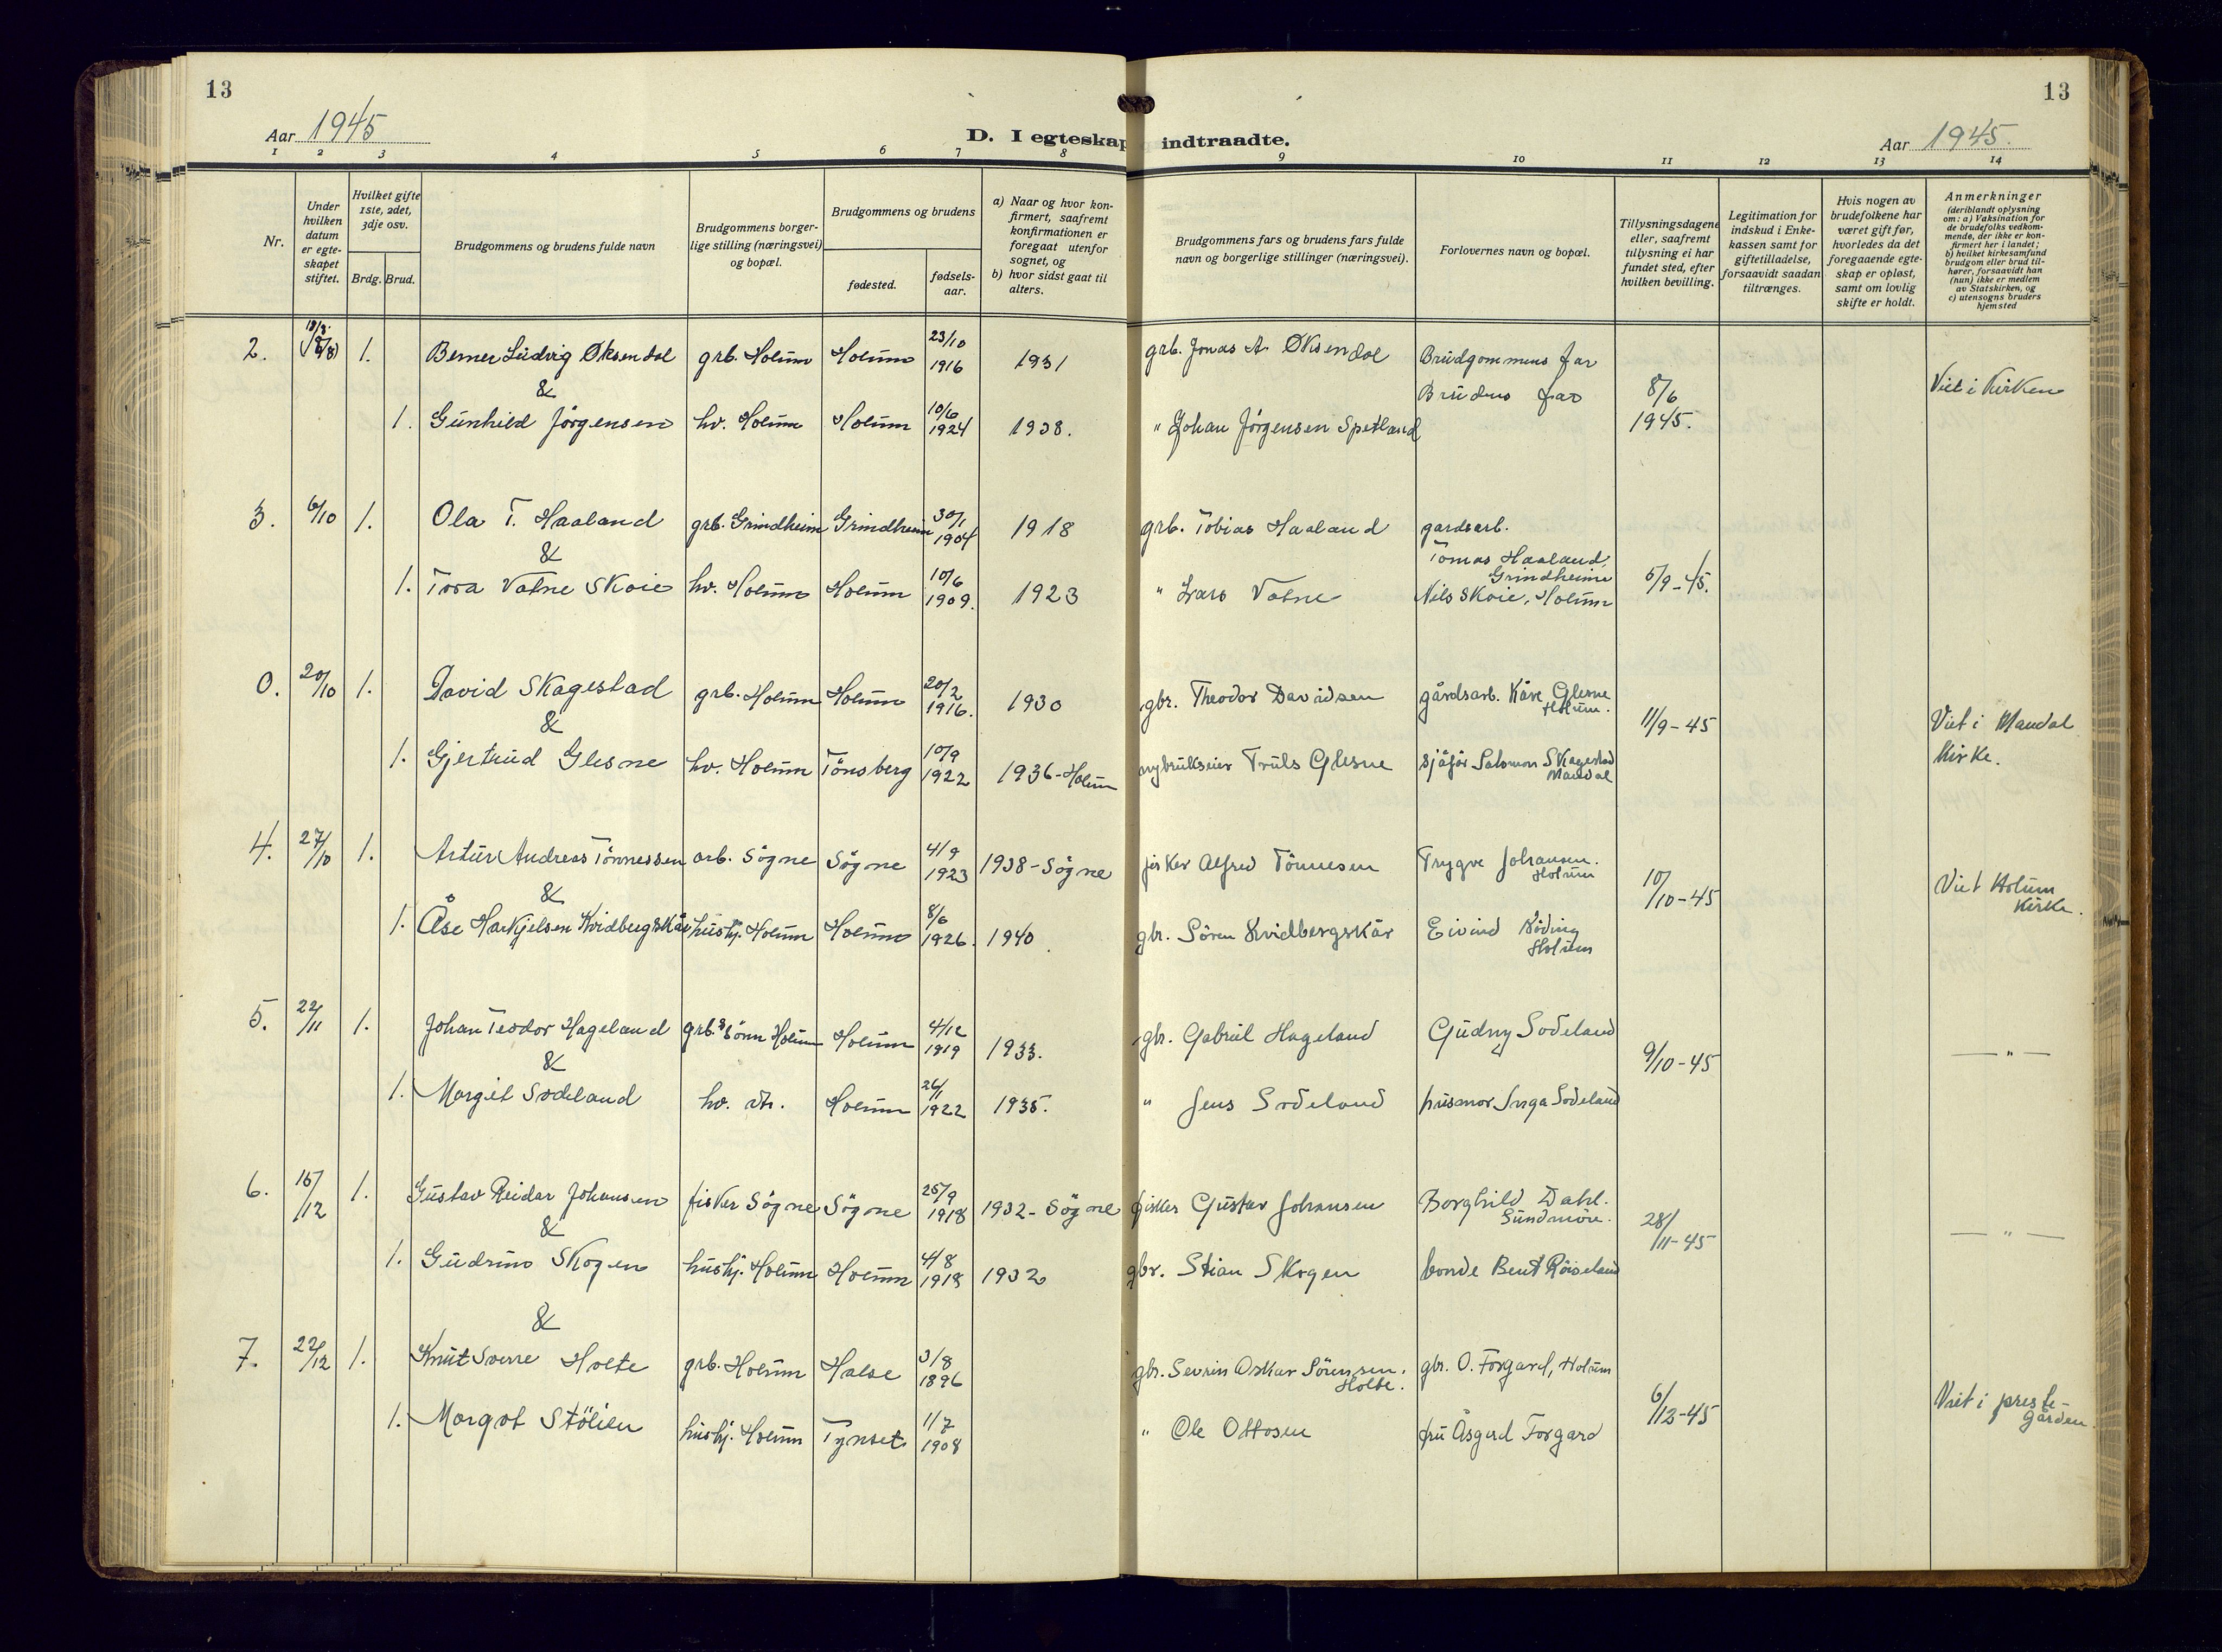 13
13
Aar 1945
D. I egteskap indtraadte.
Aar 1945.
1 2 3 4 5 6 7 8 9 10 11 12 13 14
Nr.
Under hvilken datum er egte-skapet stiftet.
Hvilket gifte 1ste, 2det, 3dje osv.
Brdg. Brud.
Brudgommens og brudens fulde navn
Brudgommens borger-lige stilling (næringsvei) og bopæl.
Brudgommens og brudens
fødested.
fødsels-aar.
a) Naar og hvor kon-firmert, saafremt konfirmationen er foregaat utenfor sognet, og
b) hvor sidst gaat til alters.
Brudgommens fars og brudens fars fulde navn og borgerlige stillinger (næringsvei).
Forlovernes navn og bopæl.
Tillysningsdagene eller, saafremt tillysning ei har fundet sted, efter hvilken bevilling.
Legitimation for indskud i Enke-kassen samt for giftetilladelse, forsaavidt saadan tiltrænges.
Hvis nogen av brudefolkene har været gift før, hvorledes da det foregaaende egte-skap er opløst, samt om lovlig skifte er holdt.
Anmerkninger
(deriblandt oplysning om: a) Vaksination for de brudefolks vedkom-mende, der ikke er kon-firmert her i landet; b) hvilket kirkesamfund brudgom eller brud til-hører, forsaavidt han (hun) ikke er medlem av Statskirken, og c) utensogns bruders hjemsted
2. 1. Berner Ludvig Øksendal grb. Holum Holum 23/10 1916 1931 grb. Jonas A. Øksendal Brudgommens far
&
Brudens far 8/6 1945. Viet i Kirken
1. Gunhild Jörgensen hv. Holum Holum 10/6 1924 1938. " Johan Jörgensen Spetland
3. 6/10 1. Ola T. Haaland grb. Grindheim Grindheim 30/1 1904 1918 grb. Tobias Haaland gardsarb.
&
Tomas Haaland, Grindheim
1. Tora Vatne Skoie hv. Holum Holum 10/6 1909. 1923 " Lars Vatne Nils Skoie, Holum 5/9-45.
0. 20/10 1. David Skagestad grb. Holum Holum 20/2 1916. 1930 gbr. Theodor Davidsen gårdsarb. Kåre Glesne Holum.
&
11/9-45 Viet i Mandal Kirke.
1. Gjertrud Glesne hv. Holum Tönsberg 10/9 1922 1936-Holum nybrukseier Truls Glesne sjåfør Salomon Skagestad Mandal
4. 27/10 1. Artur Andreas Tönnessen arb. Sögne Sögne 4/9 1923 1938-Sögne fisker Alfred Tönnesen Trygve Johansen. Holum
&
10/10-45 Viet Holum Kirke.
1. Åse Kvidbergskår hushj. Holum Holum 8/6 1926. 1940. gbr. Sören Kvidbergskår Eivind Nöding Holum
5. 22/11 1. Johan Teodor Hageland grb.s sönn Holum Holum 4/12 1919 1933. gbr. Gabriel Hageland Gudny Sodeland
&
9/10-45 — " —
1. Margit Sodeland hv. Holum 26/1 1922 1935. " Jens Sodeland husmor Inga Sodeland
6. 15/12 1. Gustav Reidar Johansen fisker Sögne Sögne 25/9 1918 1932-Sögne fisker Gustav Johansen Borghild Dahl. Sundmöre.
&
28/11-45 — " —
1. Gudrun Skogen hushj. Holum Holum 4/8 1918 1932 gbr. Stian Skogen bonde Bent Röiseland
&
7. 22/12 1. Knut Sverre Holte grb. Holum Halse 3/8 1896 gbr. Sevrin Oskar Sörensen. Holte. gbr. O. Forgard, Holum
6/12-45 Viet i preste-gården.
1. Margot Stölien hushj. Holum Tynset 1/7 1908 " Ole Ottosen fru Åsgerd Forgard